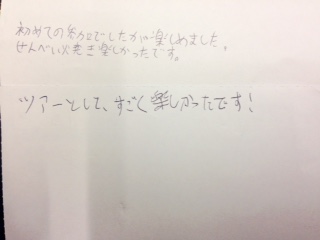 初めての参加でしたが楽しめました。
せんべい焼き楽しかったです。
ツアーとして、すごく楽しかったです!